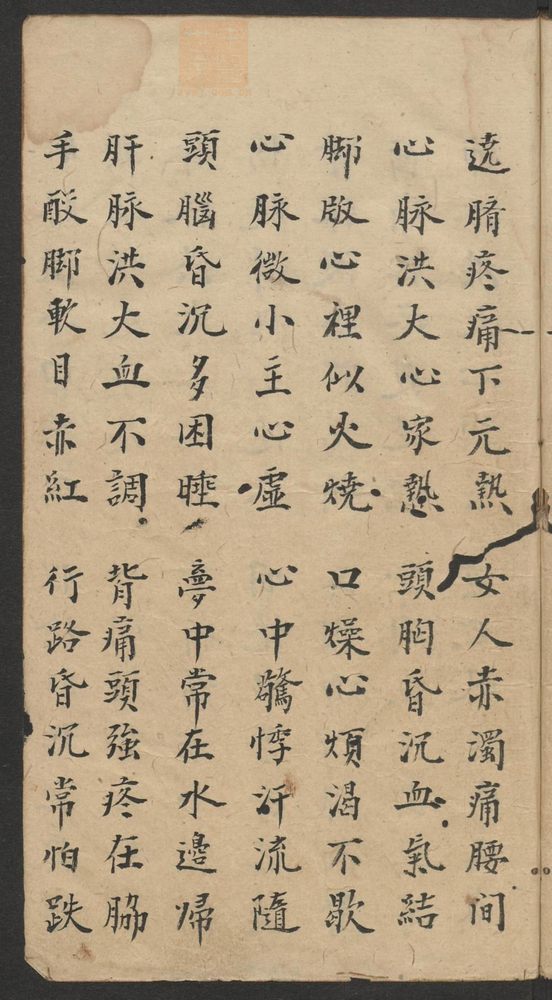 遶臍疼痛下元熱　女人赤濁痛腰間
心脉洪大心家熱　頭胸昏沉血氣結
脚版心裡似火燒　口燥心煩渴不歇
心脉微小主心虛　心中驚悸汗流隨
頭腦昏沉多困睡　夢中常在水邊歸
肝脉洪大血不調　背痛頭強疼在脇
手酸脚軟目赤紅　行路昏沉常怕跌